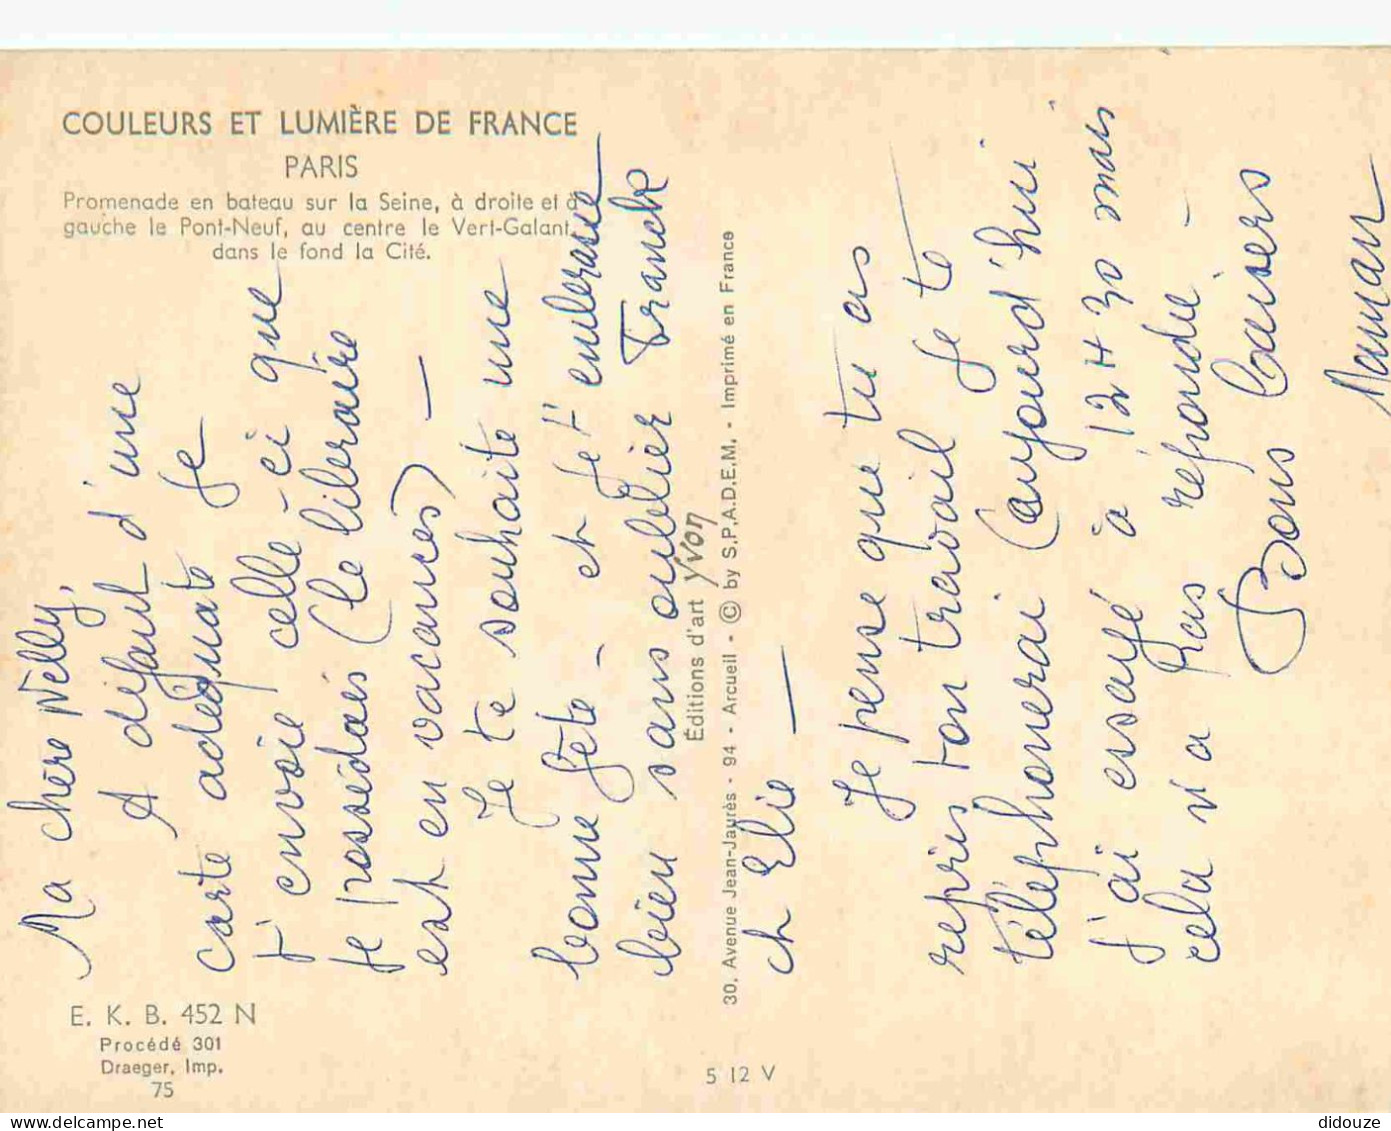 COULEURS ET LUMIÈRE DE FRANCE
PARIS
Promenade en bateau sur la Seine, à droite et à
gauche le Pont-Neuf, au centre le Vert-Galant,
dans le fond la Cité.
Ma chère Nelly,
A défaut d'une
carte adéquate Je
t'envoie celle-ci que
Je possédais (le libraire
est en vacances) —
Je te souhaite une
bonne fête - et Je t'embrasse
bien sans oublier Franck
et Elie —
Je pense que tu as
repris ton travail Je te
téléphonerai (aujourd'hui
J'ai essayé à 12 H 30 mais
cela n'a pas répondu -
Bons baisers
Maman
Éditions d'art Yvon
30, Avenue Jean-Jaurès - 94 - Arcueil - © by S.P.A.D.E.M. - Imprimé en France
E. K. B. 452 N
Procédé 301
Draeger, Imp.
75
5 12 V
didouze